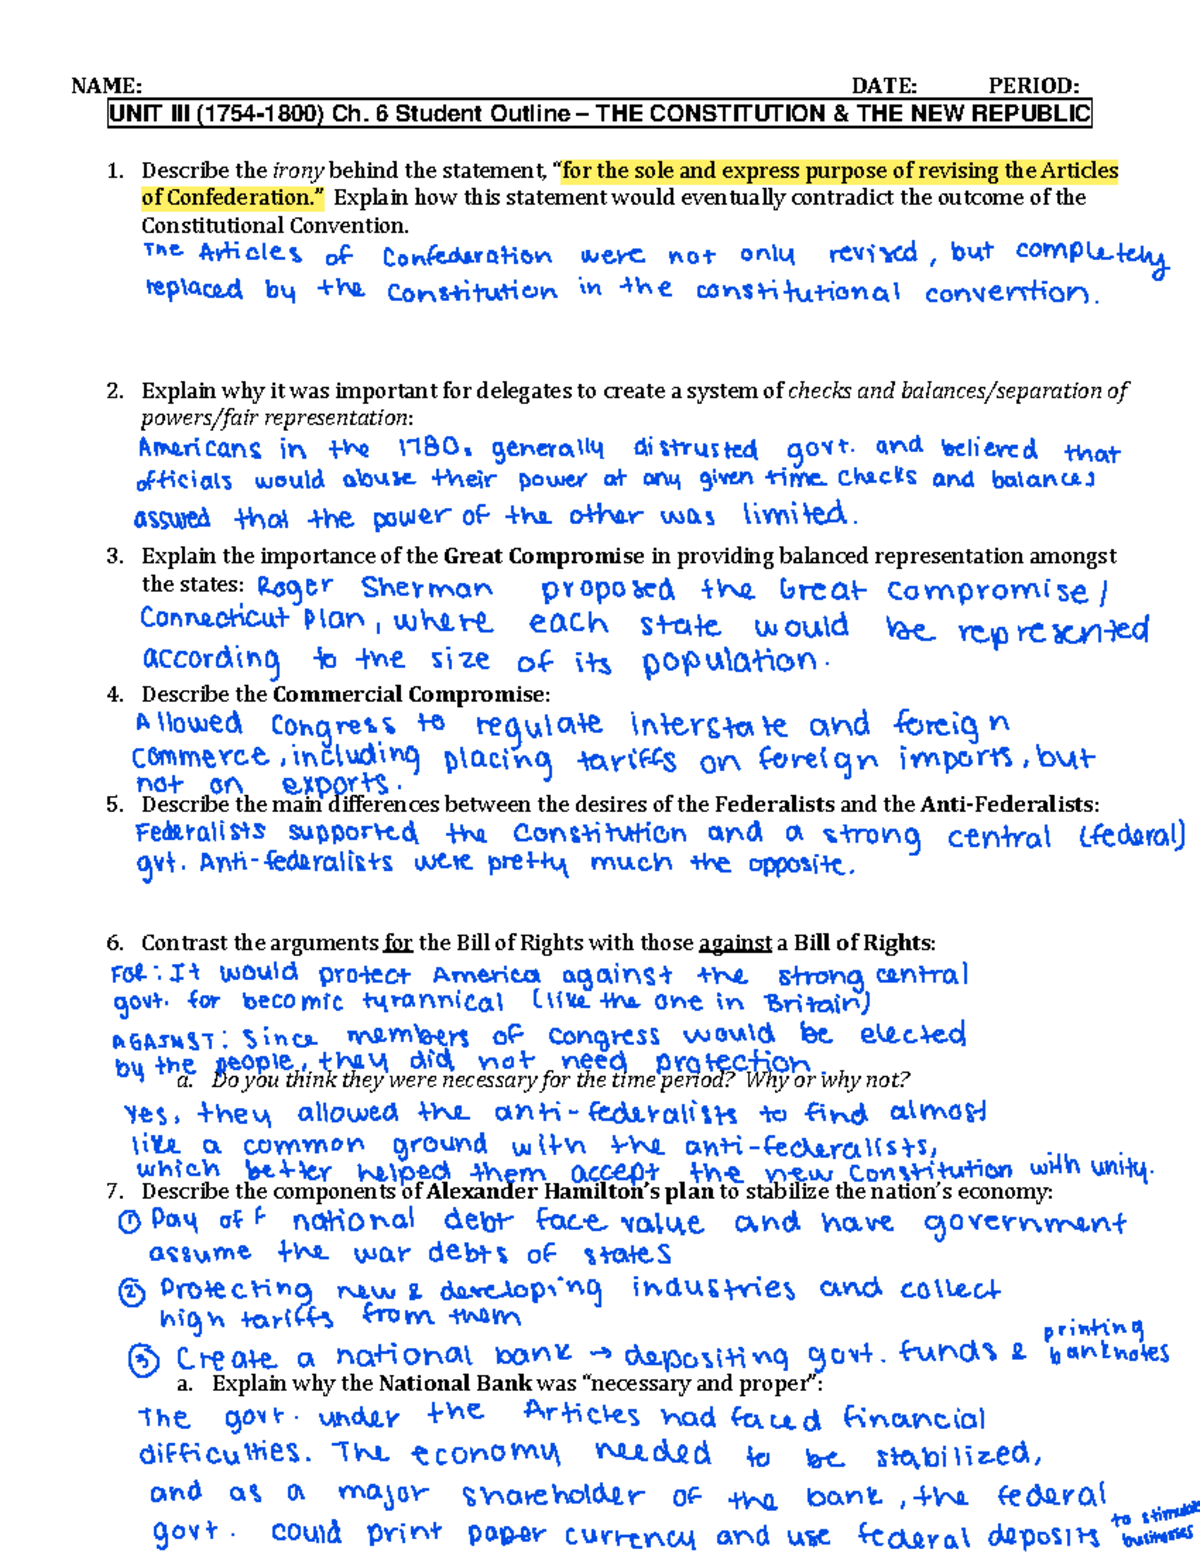 NAME: DATE: PERIOD:
UNIT III (1754-1800) Ch. 6 Student Outline – THE CONSTITUTION & THE NEW REPUBLIC
1. Describe the irony behind the statement, “for the sole and express purpose of revising the Articles
of Confederation.” Explain how this statement would eventually contradict the outcome of the
Constitutional Convention.
The Articles of Confederation were not only revised, but completely
replaced by the Constitution in the constitutional convention.
2. Explain why it was important for delegates to create a system of checks and balances/separation of
powers/fair representation:
Americans in the 1780s generally distrusted govt. and believed that
officials would abuse their power at any given time. Checks and balances
assured that the power of the other was limited.
3. Explain the importance of the Great Compromise in providing balanced representation amongst
the states: Roger Sherman proposed the Great Compromise/
Connecticut Plan, where each state would be represented
according to the size of its population.
4. Describe the Commercial Compromise:
Allowed Congress to regulate interstate and foreign
commerce, including placing tariffs on foreign imports, but
not on exports.
5. Describe the main differences between the desires of the Federalists and the Anti-Federalists:
Federalists supported the Constitution and a strong central (federal)
gvt. Anti-federalists were pretty much the opposite.
6. Contrast the arguments for the Bill of Rights with those against a Bill of Rights:
FOR: It would protect America against the strong central
govt. for becomic tyrannical (like the one in Britain)
AGAINST: Since members of congress would be elected
by the people, they did not need protection.
a. Do you think they were necessary for the time period? Why or why not?
Yes, they allowed the anti-federalists to find almost
like a common ground with the anti-federalists,
which better helped them accept the new Constitution with unity.
7. Describe the components of Alexander Hamilton’s plan to stabilize the nation’s economy:
① Pay off national debt face value and have government
assume the war debts of states
② Protecting new & developing industries and collect
high tariffs from them
③ Create a national bank → depositing govt. funds & printing banknotes
a. Explain why the National Bank was “necessary and proper”:
The govt. under the Articles had faced financial
difficulties. The economy needed to be stabilized,
and as a major shareholder of the bank, the federal
govt. could print paper currency and use federal deposits to stimulate businesses